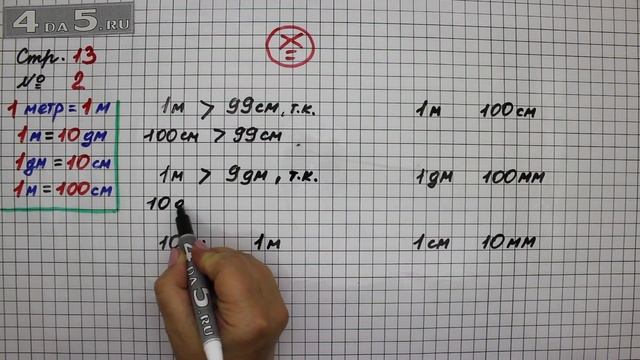 4 DA 5.RU
Стр. 13
№ 2
1 метр = 1 м
1м = 10 дм
1 дм = 10 см
1 м = 100 см
1м > 99 см, т.к.
100 см > 99 см
1м > 9 дм, т.к.
10 д
10 1 м
1 м 100 см
1 дм 100 мм
1 см 10 мм
4 DA 5.RU